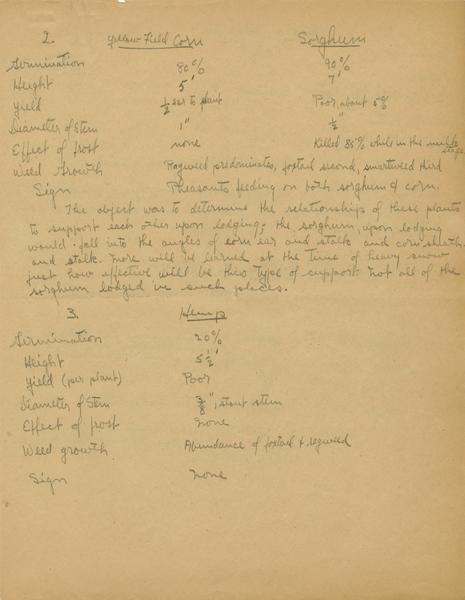 2. Yellow Field Corn Sorghum
Germination 80% 90%
Height 5' 7'
Yield ½ ear to plant Poor, about 5%
Diameter of Stem 1" ½"
Effect of frost none Killed 85% while in the milk stage
Weed Growth Ragweed predominates, foxtail second, smartweed third
Sign Pheasants feeding on both sorghum & corn.
The object was to determine the relationships of these plants
to support each other upon lodging. The sorghum, upon lodging
would fall into the angles of corn ear and stalk and corn sheath
and stalk. More will be learned at the time of heavy snow
just how effective will be this type of support. Not all of the
sorghum lodged in such places.
3. Hemp
Germination 20%
Height 5½'
Yield (per plant) Poor
Diameter of Stem ⅜", stout stem
Effect of frost none
Weed growth Abundance of foxtail & ragweed
Sign none